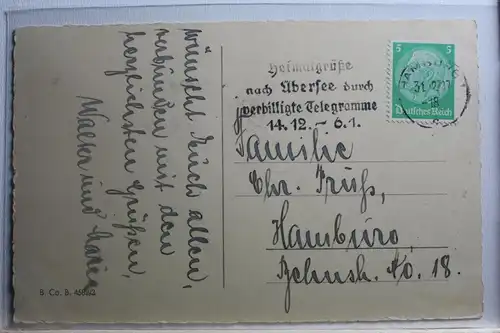 wünscht Euch allen,
verbunden mit den
herzlichsten Grüßen,
Walter und
Heimatgrüße
nach Übersee durch
verbilligte Telegramme
14.12. – 6.1.
5 5
Deutsches Reich
HAMBURG 1
31.12.
-18
Familie
Chr.
Hamburg,
No. 18.
B. Co. B.